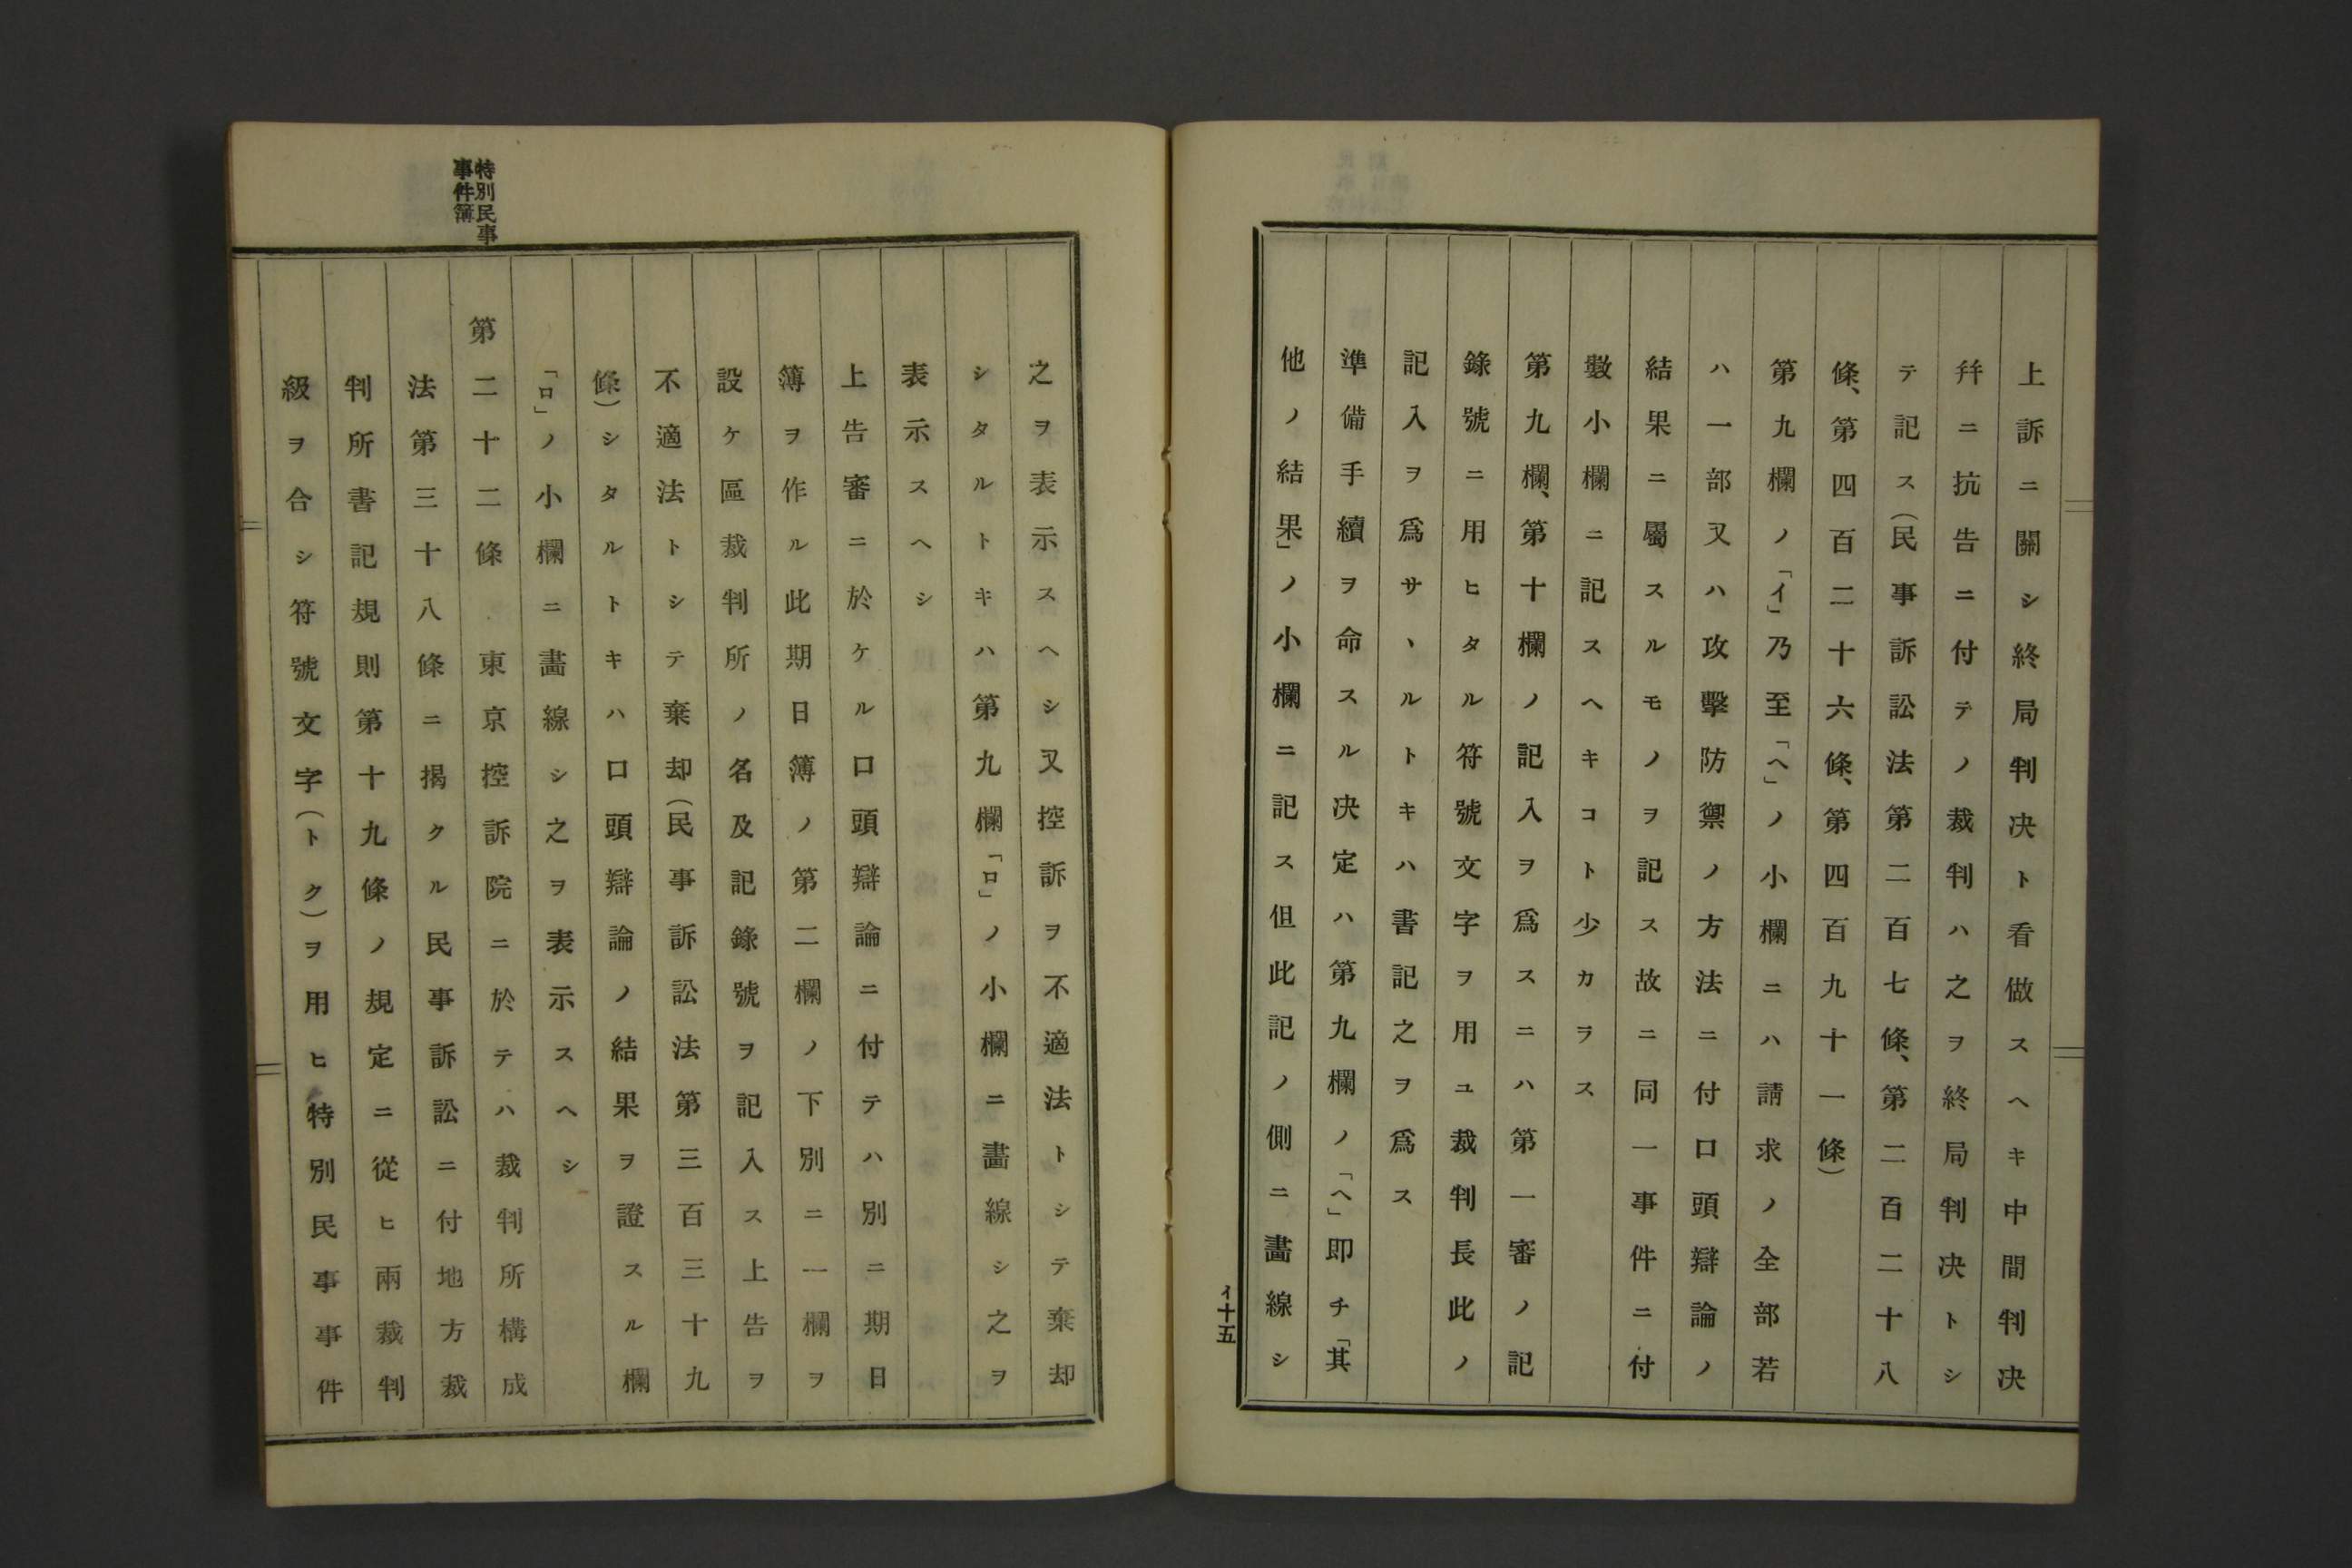 上訴ニ關シ終局判决ト看做スヘキ中間判决
幷ニ抗吿ニ付テノ裁判ハ之ヲ終局判决トシ
テ記ス(民事訴訟法第二百七條、第二百二十八
條、第四百二十六條、第四百九十一條)
第九欄ノ「イ」乃至「ヘ」ノ小欄ニハ請求ノ全部若
ハ一部又ハ攻擊防禦ノ方法ニ付口頭辯論ノ
結果ニ屬スルモノヲ記ス故ニ同一事件ニ付
數小欄ニ記スヘキコト少カラス
第九欄、第十欄ノ記入ヲ爲スニハ第一審ノ記
錄號ニ用ヒタル符號文字ヲ用ユ裁判長此ノ
記入ヲ爲サヽルトキハ書記之ヲ爲ス
準備手續ヲ命スル决定ハ第九欄ノ「ヘ」即チ「其
他ノ結果」ノ小欄ニ記ス但此記ノ側ニ畫線シ
イ十五
之ヲ表示スヘシ又控訴ヲ不適法トシテ棄却
シタルトキハ第九欄「ロ」ノ小欄ニ畫線シ之ヲ
表示スヘシ
上告審ニ於ケル口頭辯論ニ付テハ別ニ期日
簿ヲ作ル此期日簿ノ第二欄ノ下別ニ一欄ヲ
設ケ區裁判所ノ名及記錄號ヲ記入ス上告ヲ
不適法トシテ棄却(民事訴訟法第三百三十九
條)シタルトキハ口頭辯論ノ結果ヲ證スル欄
「ロ」ノ小欄ニ畫線シ之ヲ表示スヘシ
特別民事
事件簿
第二十二條 東京控訴院ニ於テハ裁判所構成
法第三十八條ニ揭クル民事訴訟ニ付地方裁
判所書記規則第十九條ノ規定ニ從ヒ兩裁判
級ヲ合シ符號文字(トク)ヲ用ヒ特別民事事件